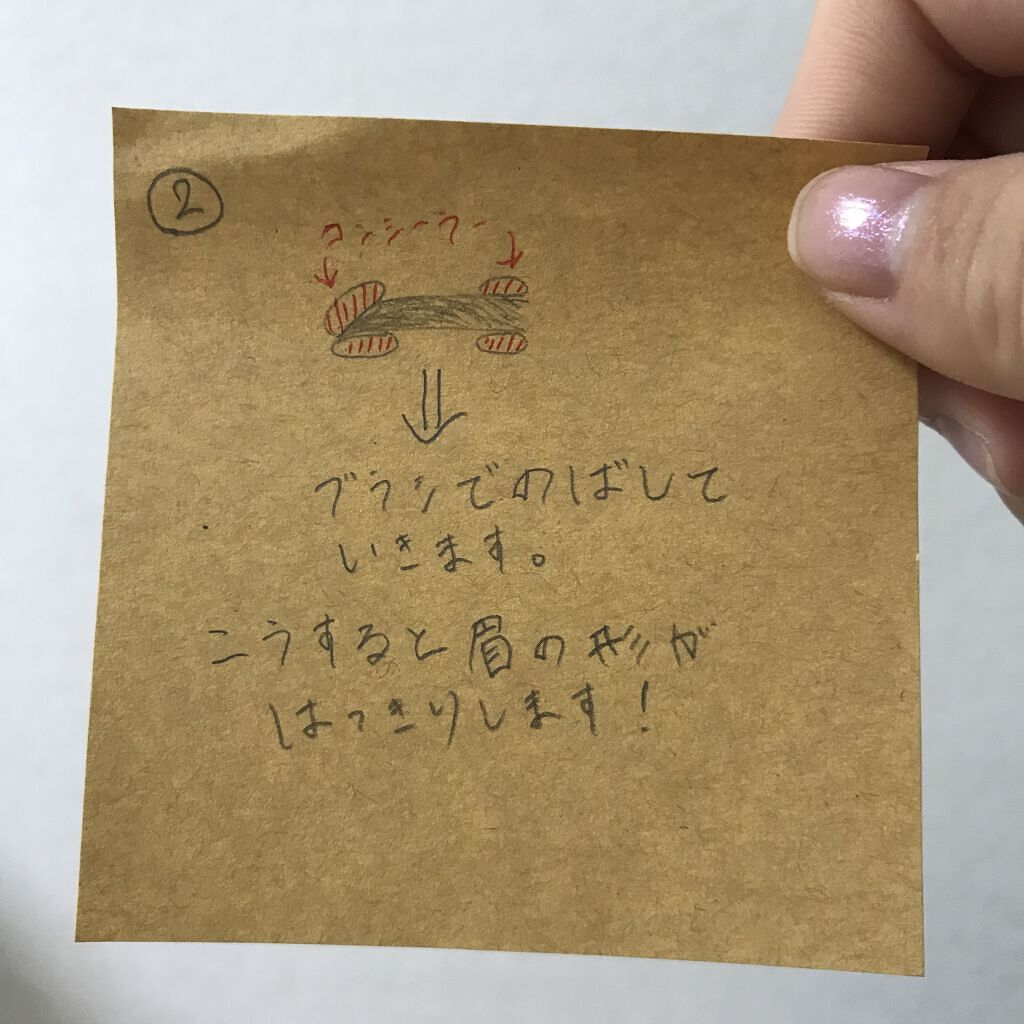 ②
コンシーラー
ブラシでのばして
いきます。
こうすると眉の形が
はっきりします!